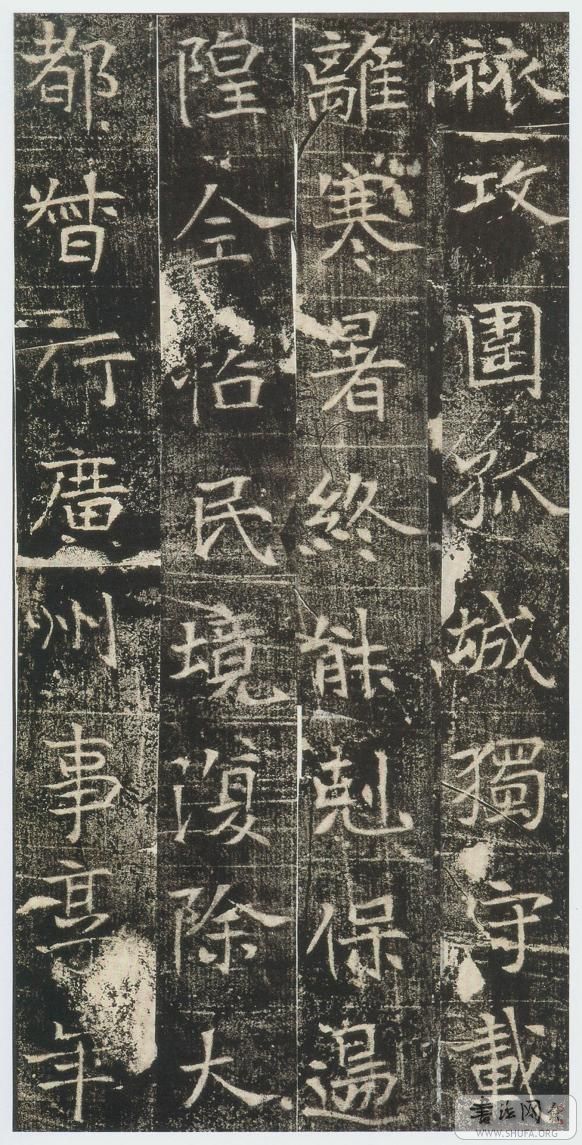 攻圍孤城獨守載
離寒暑終能剋保邊
隍全怡民境復除大
都督行廣州事享年
書法网
WWW.SHUFA.ORG